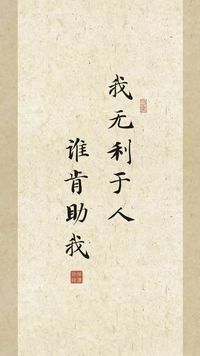 我无利于人
谁肯助我